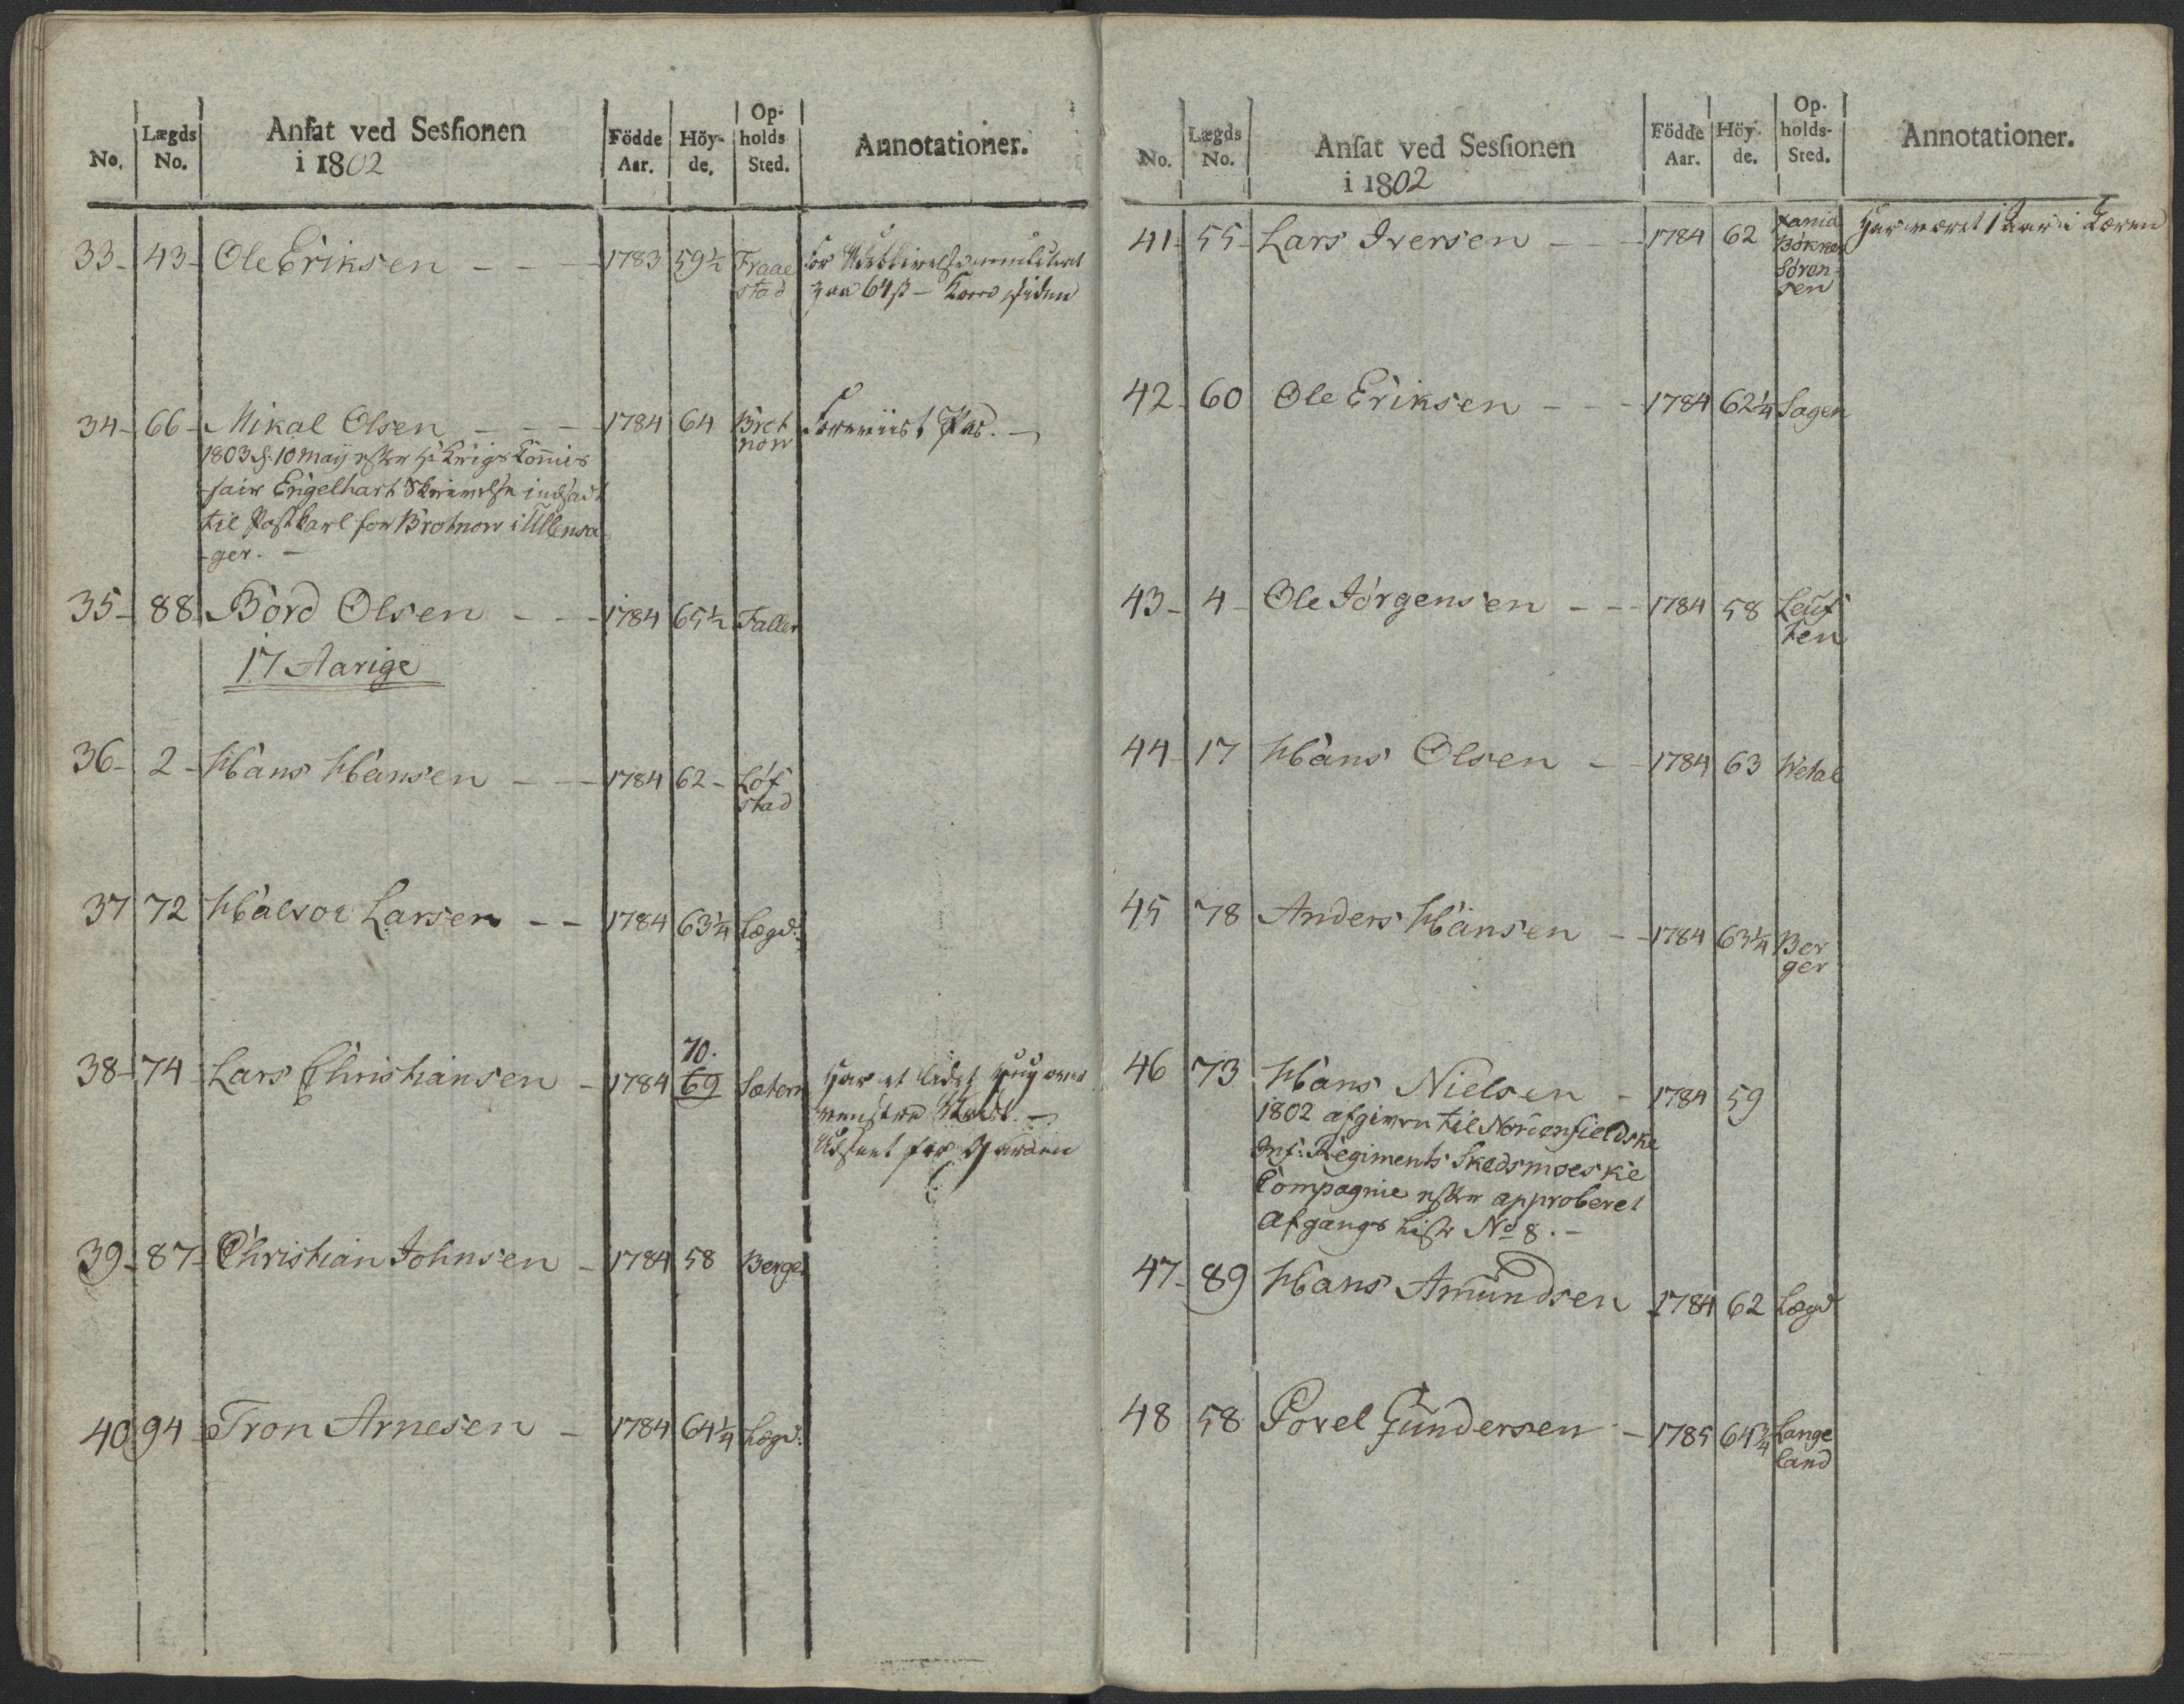 No. Lægds No. Ansat ved Sessionen i 1802 Födde Aar. Höy-de. Op-holds Sted. Annotationer.
33- 43- Ole Eriksen - - - 1783 59½ Fraae
stad
paa 64 ß -
34- 66- Mikal Olsen - - - 1784 64 Bret
now
Foreviist Pas. -
1803 d: 10 Maij efter Hr Krigs Commis
-sair Engelhart Skrivelse indsadt
til Postkarl for Brotnow i Ullensa
-ger. -
35- 88 Bórd Olsen - - 1784 65½ Faller
17 Aarige
36- 2- Hans Hansen - - 1784 62- Löf
stad
37 72 Halvor Larsen - - 1784 63¼ Lægd:
38- 74- Lars Christiansen - 1784 70.
69 Sætern Har et lidet hug over
venstre
Udseet for Garden
39- 87- Christian Johnsen - 1784 58 Berger
40 94- Tron Arnesen - 1784 64¼ Lægd:
No. Lægds No. Ansat ved Sessionen i 1802 Födde Aar. Höy-de. Op-holds-Sted. Annotationer.
41- 55- Lars Iversen - - 1784 62 Xania
Sören-
sen
Har været 1 Aar i Læren
42- 60 Ole Eriksen - - - 1784 62¼ Sagen
43- 4- Ole Jörgensen - - 1784 58 Leuf
ten
44- 17 Hans Olsen - - 1784 63 Wetal
45 78 Anders Hansen - - 1784 63¼ Ber
ger
46 73 Hans Nielsen - 1784 59
1802 afgiven til Nordenfieldske
Inf: Regiments Skedsmoeske
Compagnie efter approberet
Afgangs Liste No 8. -
47- 89 Hans Amundsen 1784 62 Lægd
48 58 Povel Gundersen - 1785 64¾ Lange
land